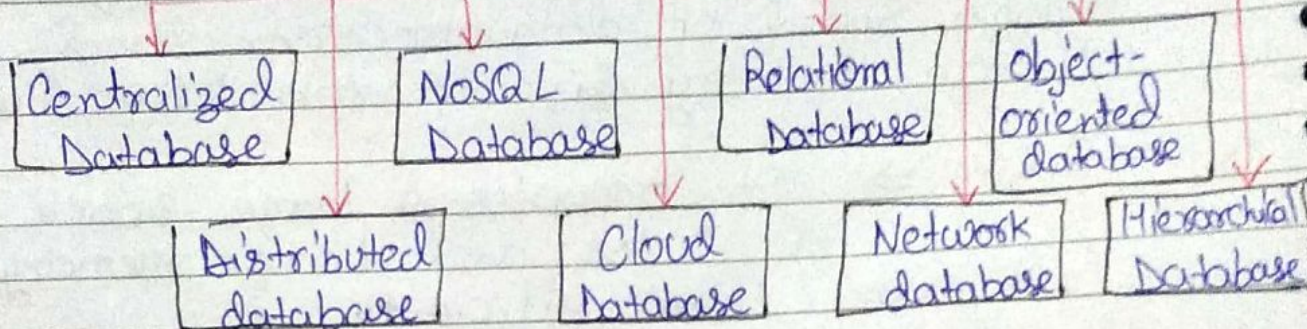 Centralized
Database
NoSQL
Database
Relational
Database
Object-
oriented
database
Distributed
database
Cloud
Database
Network
database
Hierarchical
Database